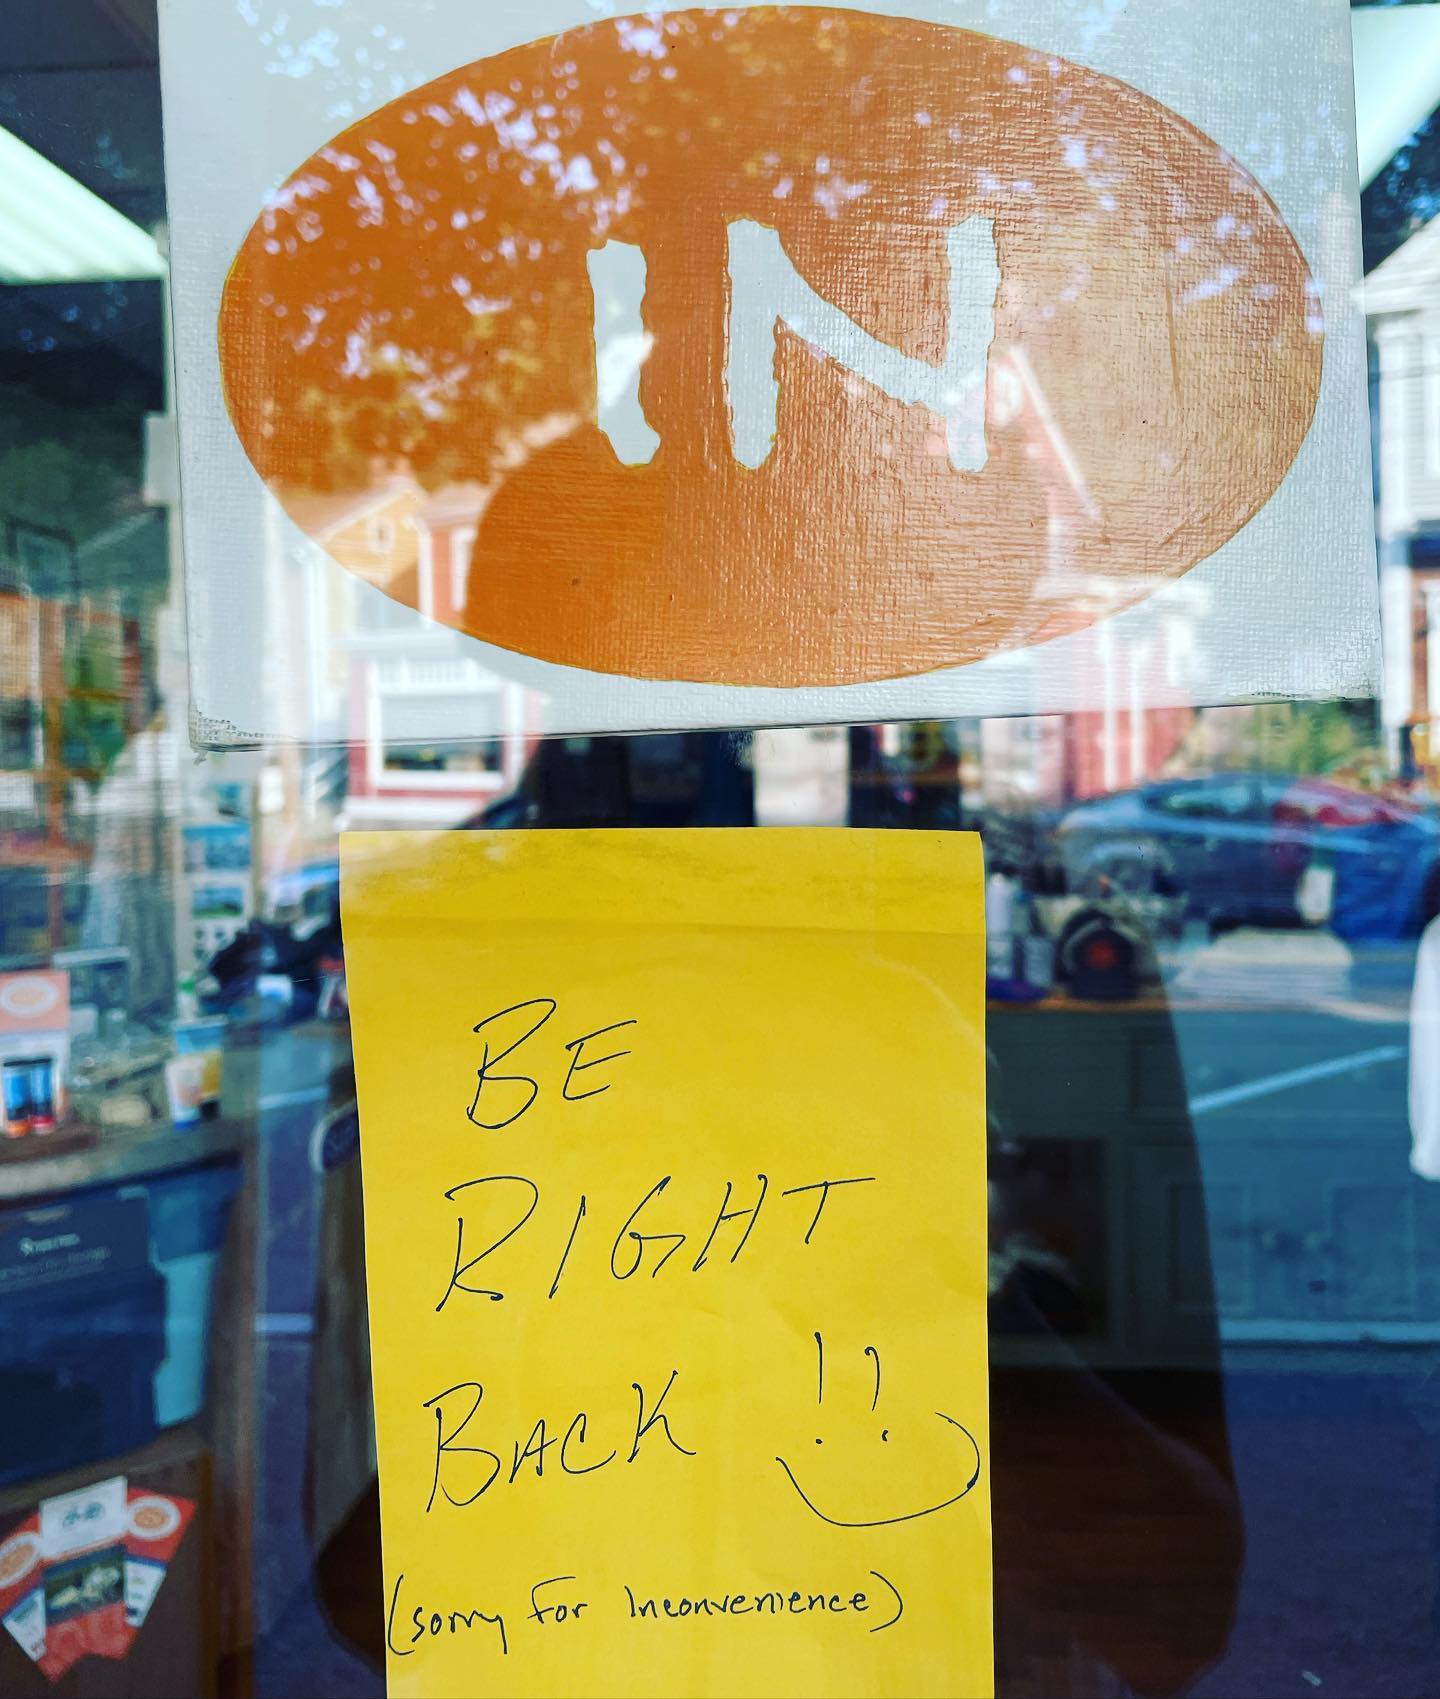 IN
BE
RIGHT
BACK !!
(sorry for Inconvenience)